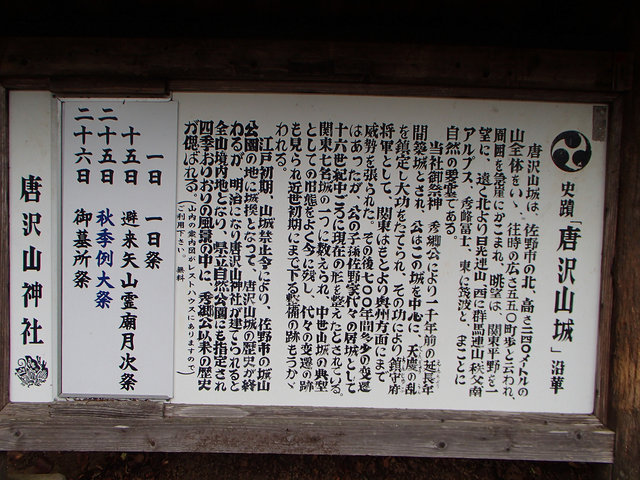 史蹟「唐沢山城」沿革
唐沢山城は、佐野市の北、高さ二四〇メートルの
山全体をいい、往時の広さ五五〇町歩と云われ、
周囲を急崖にかこまれ、眺望は、関東平野を一
望に、遠く北より日光連山、西に群馬連山、秩父、南
アルプス、秀峰富士、東に筑波と、まことに
自然の要塞である。
当社御祭神 秀郷公により一千年前の延長年
間築城とされ、公はこの城を中心に、天慶の乱
を鎮定し大功をたてられ、その功により鎮守府
将軍として、関東はもとより奥州方面にまで
威勢を張られた。その後七〇〇年間多少の変遷
はあったが、公の子孫佐野家代々の居城として
十六世紀中ごろに現在の形を整えたとされている。
関東七名城の一つに数えられ、中世山城の典型
としての旧態をよく今に残し、代々の変遷の跡
も見られ近世初期にまで下る整備の跡もうかゞ
われる。
江戸初期、山城禁止令により、佐野市の城山
公園の地に城換となって、唐沢山城の歴史が終
わるが、明治になり唐沢山神社が建てられると
全山境内地となり、県立自然公園にも指定され
四季おりおりの風景の中に、秀郷公以来の歴史
が偲ばれる。
(山内の案内図がレストハウスにありますので
ご利用下さい。無料)
一日 一日祭
十五日 避来矢山霊廟月次祭
二十五日 秋季例大祭
二十六日 御墓所祭
唐沢山神社